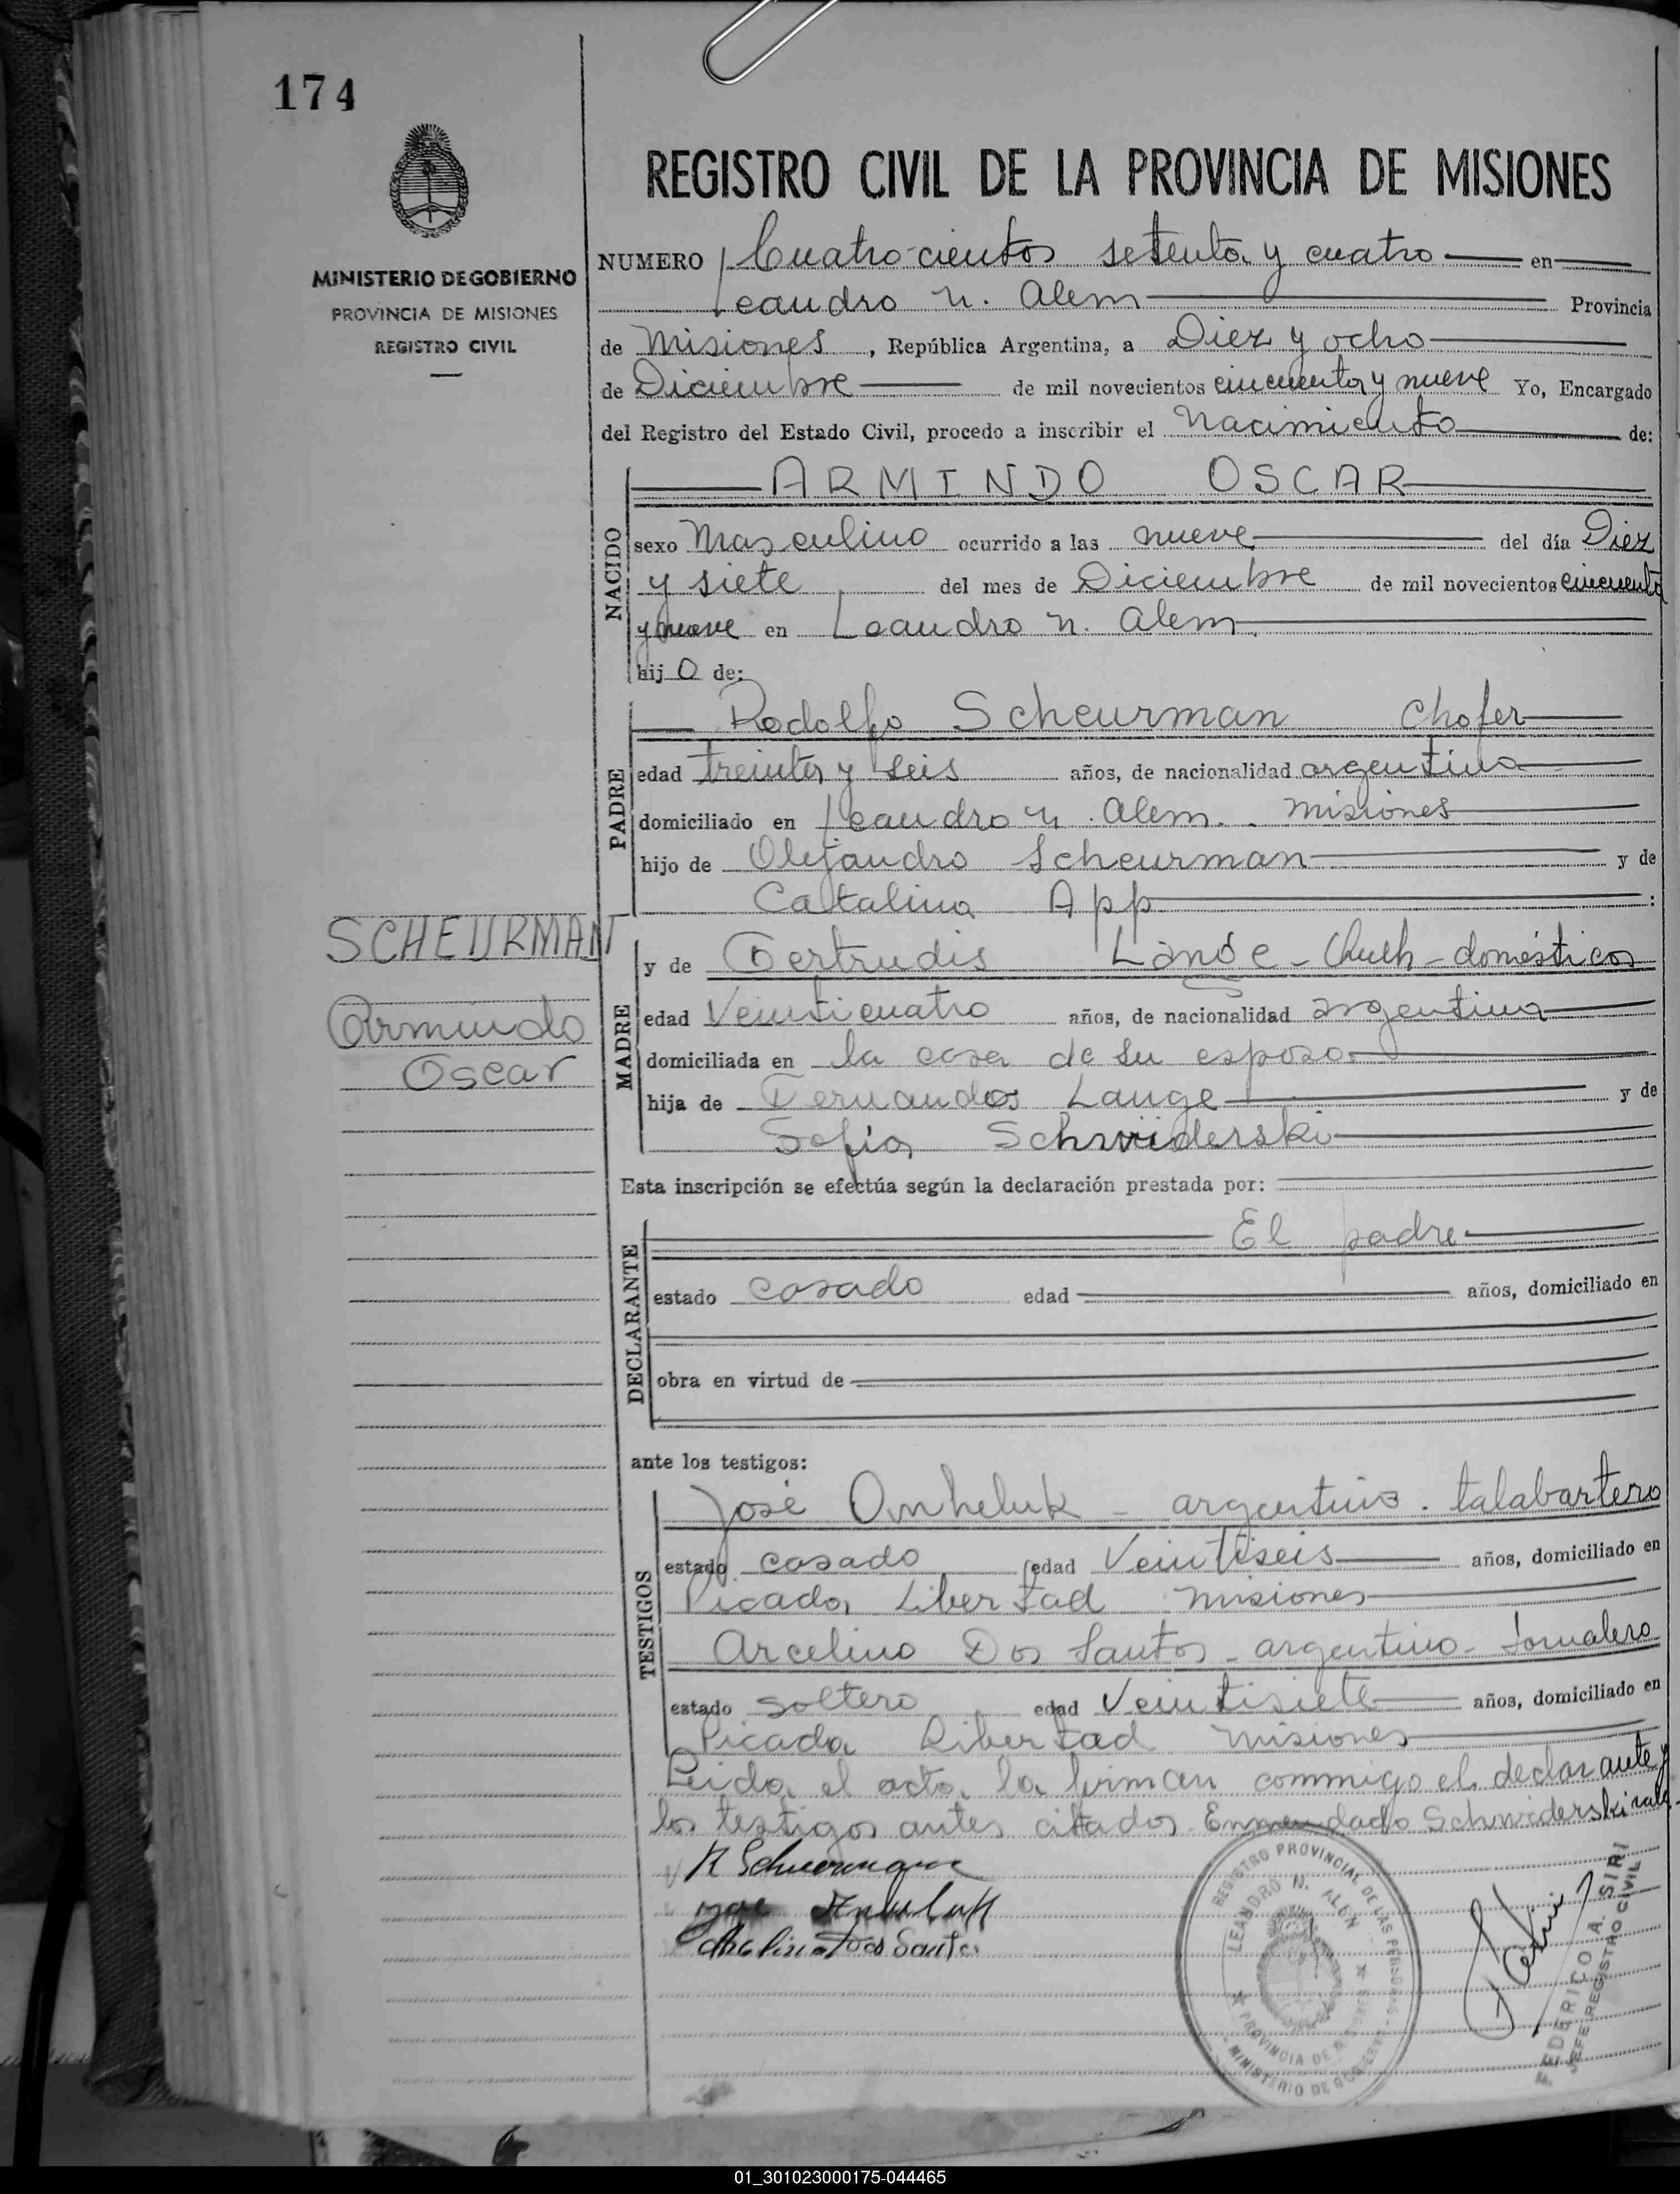 174
MINISTERIO DE GOBIERNO
PROVINCIA DE MISIONES
REGISTRO CIVIL
REGISTRO CIVIL DE LA PROVINCIA DE MISIONES
NUMERO Cuatrocientos setenta y cuatro en
Leandro N. Alem Provincia
de Misiones, República Argentina, a Diez y ocho
de Diciembre de mil novecientos cincuenta y nueve Yo, Encargado
del Registro del Estado Civil, procedo a inscribir el Nacimiento de:
NACIDO
ARMINDO OSCAR
sexo Masculino ocurrido a las nueve del día Diez
y siete del mes de Diciembre de mil novecientos cincuenta
y nueve en Leandro N. Alem.
hijo de:
PADRE
Rodolfo Scheurman Chofer
edad treinta y seis años, de nacionalidad argentina
domiciliado en Leandro N. Alem. Misiones
hijo de Alejandro Scheurman y de
Catalina App :
SCHEURMAN
Armindo
Oscar
MADRE
y de Gertrudis Lange - Queh-domésticos
edad Veinticuatro años, de nacionalidad argentina
domiciliada en la casa de su esposo.
hija de Fernando Lange y de
Sofía Schwiderski
Esta inscripción se efectúa según la declaración prestada por:
DECLARANTE
El padre
estado casado edad años, domiciliado en
obra en virtud de
ante los testigos:
TESTIGOS
José Omheluk - argentino. talabartero
estado casado edad Veintiseis años, domiciliado en
Picada Libertad Misiones
Arcelino Dos Santos - argentino - Jornalero
estado soltero edad Veintisiete años, domiciliado en
Picada Libertad Misiones
Leida el acta, la firman conmigo el declarante y
los testigos antes citados. Enmendado Schwiderski vale.
R Scheurman
Dos Santos
REGISTRO PROVINCIAL DE LAS PERSONAS
LEANDRO N. ALEM
PROVINCIA DE MISIONES
MINISTERIO DE GOBIERNO
FEDERICO A. SIRI
JEFE REGISTRO CIVIL
01_301023000175-044465